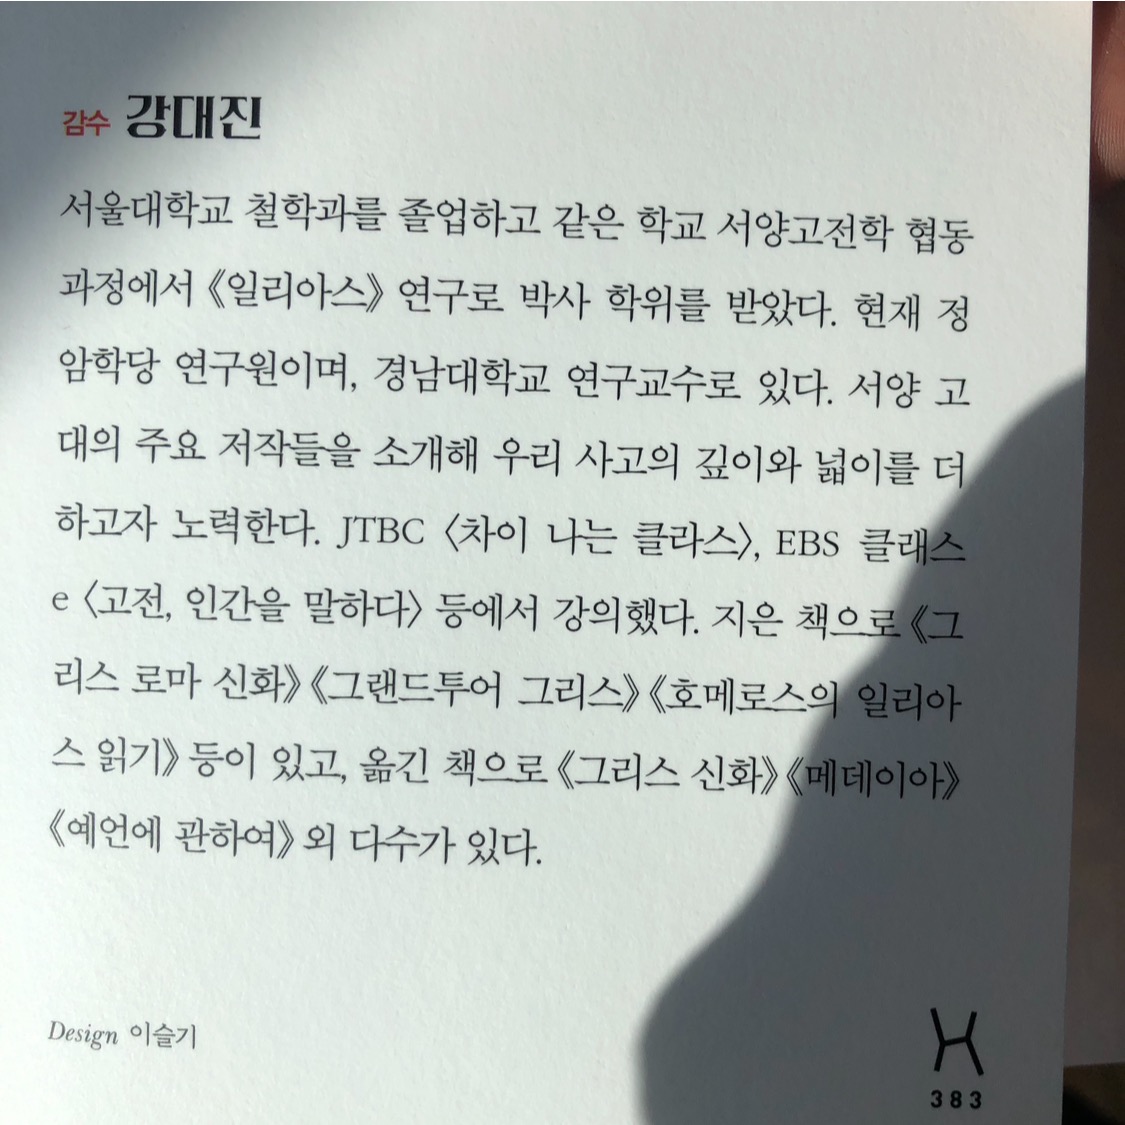 감수 강대진
서울대학교 철학과를 졸업하고 같은 학교 서양고전학 협동
과정에서 《일리아스》 연구로 박사 학위를 받았다. 현재 정
암학당 연구원이며, 경남대학교 연구교수로 있다. 서양 고
대의 주요 저작들을 소개해 우리 사고의 깊이와 넓이를 더
하고자 노력한다. JTBC 〈차이 나는 클라스〉, EBS 클래스
e 〈고전, 인간을 말하다〉 등에서 강의했다. 지은 책으로 《그
리스 로마 신화》 《그랜드투어 그리스》 《호메로스의 일리아
스 읽기》 등이 있고, 옮긴 책으로 《그리스 신화》 《메데이아》
《예언에 관하여》 외 다수가 있다.
Design 이슬기
383